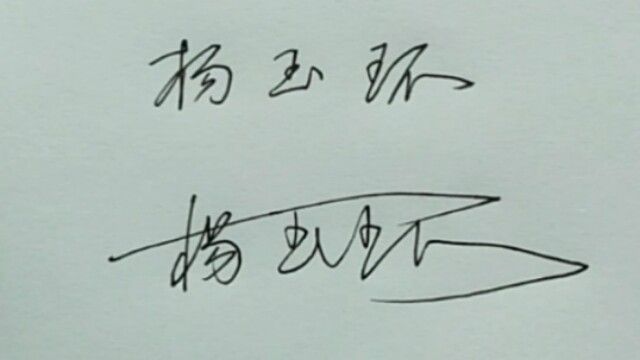 杨玉环
杨玉环